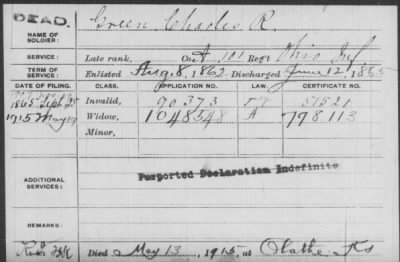 DEAD.
NAME OF SOLDIER:
Green Charles R.
SERVICE:
Late rank, Co. A 101 Reg't Ohio Inf
TERM OF SERVICE:
Enlisted Aug. 8, 1862 Discharged June 12, 1865
DATE OF FILING. CLASS. APPLICATION NO. LAW. CERTIFICATE NO.
1865 Sept 25 Invalid, 90373 57521
1915 May 19 Widow, 1048548 A 798113
Minor,
ADDITIONAL SERVICES:
Purported Declaration Indefinite
REMARKS:
Died May 13, 1915, at Olathe Ks